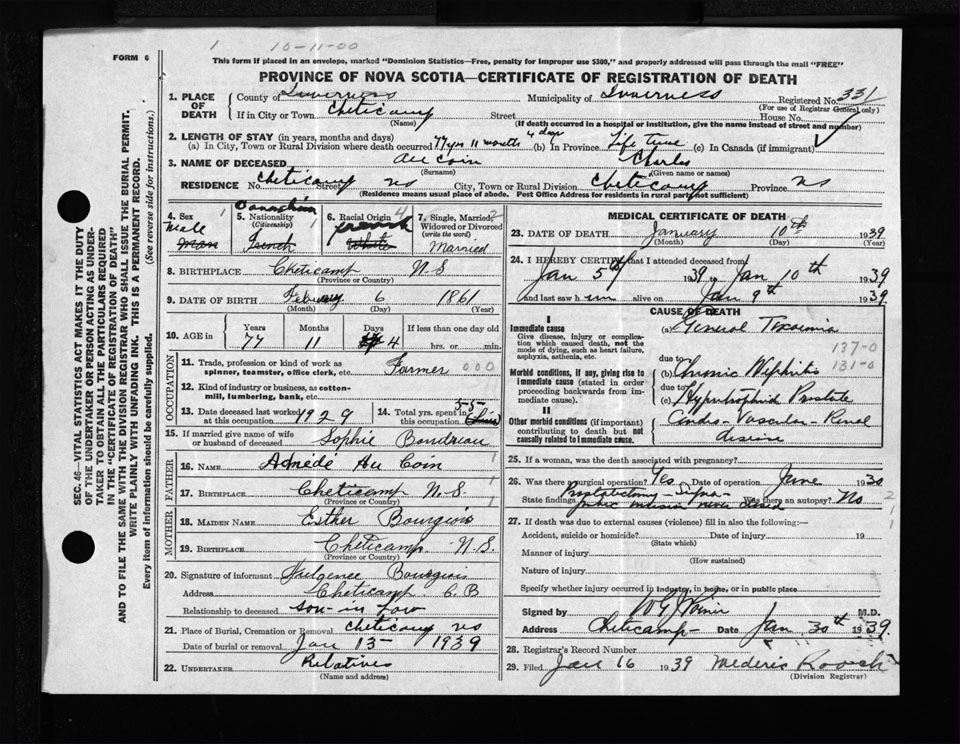 1 10-11-00
FORM 6
This form if placed in an envelope, marked "Dominion Statistics—Free, penalty for improper use $300," and properly addressed will pass through the mail "FREE"
PROVINCE OF NOVA SCOTIA—CERTIFICATE OF REGISTRATION OF DEATH
1. PLACE OF DEATH County of Inverness Municipality of Inverness Registered No. 331
(For use of Registrar General only)
If in City or Town Cheticamp Street House No.
(Name) (If death occurred in a hospital or institution, give the name instead of street and number)
2. LENGTH OF STAY (in years, months and days)
(a) In City, Town or Rural Division where death occurred 77 yrs 11 months 4 days (b) In Province Life time (c) In Canada (if immigrant)
3. NAME OF DECEASED Au Coin Charles
(Surname) (Given name or names)
RESIDENCE No. Cheticamp Street NS City, Town or Rural Division Cheticamp Province NS
(Residence means usual place of abode. Post Office Address for residents in rural parts not sufficient)
4. Sex 1 Male Man
5. Nationality (Citizenship) Canadian French 1
6. Racial Origin 4 French White
7. Single, Married, Widowed or Divorced (write the word) 2 Married
8. BIRTHPLACE Cheticamp N.S
(Province or Country)
9. DATE OF BIRTH February 6 1861
(Month) (Day) (Year)
10. AGE in Years 77 Months 11 Days 4 If less than one day old hrs. or min.
OCCUPATION
11. Trade, profession or kind of work as spinner, teamster, office clerk, etc. Farmer 000
12. Kind of industry or business, as cotton-mill, lumbering, bank, etc.
13. Date deceased last worked at this occupation 1929
14. Total yrs. spent in this occupation 55
15. If married give name of wife or husband of deceased Sophie Boudreau
FATHER
16. NAME Amédé Au Coin
17. BIRTHPLACE Cheticamp N.S.
(Province or Country)
MOTHER
18. MAIDEN NAME Esther Bourgeois
19. BIRTHPLACE Cheticamp N.S.
(Province or Country)
20. Signature of informant Fulgence Bourgeois
Address Cheticamp C.B
Relationship to deceased son-in law
21. Place of Burial, Cremation or Removal Cheticamp NS
Date of burial or removal Jan 13 - 1939
22. UNDERTAKER Relatives
(Name and address)
MEDICAL CERTIFICATE OF DEATH
23. DATE OF DEATH January 10th 1939
(Month) (Day) (Year)
24. I HEREBY CERTIFY that I attended deceased from
Jan 5th 1939 to Jan 10th 1939
and last saw him alive on Jan 9th 1939.
CAUSE OF DEATH
I
Immediate cause
Give disease, injury or complication which caused death, not the mode of dying, such as heart failure, asphyxia, asthenia, etc.
(a) General Toxaemia
137-0
131-0
due to
Morbid conditions, if any, giving rise to immediate cause (stated in order proceeding backwards from immediate cause).
(b) Chronic Nephritis
due to
(c) Hypertrophied Prostate
II
Other morbid conditions (if important) contributing to death but not causally related to immediate cause.
Cardio-Vascular-Renal disease
25. If a woman, was the death associated with pregnancy?
26. Was there surgical operation? Yes Date of operation June 1930
State findings Prostatectomy - Supra-pubic incision never closed Was there an autopsy? No
2
1
27. If death was due to external causes (violence) fill in also the following:—
Accident, suicide or homicide? Date of injury 19
(State which)
Manner of injury
(How sustained)
Nature of injury
Specify whether injury occurred in industry, in home, or in public place
Signed by M.D.
Address Cheticamp - Date Jan 30th 1939.
28. Registrar's Record Number
29. Filed Jan 16 1939 Mederic Roach
(Division Registrar)
SEC. 46—VITAL STATISTICS ACT MAKES IT THE DUTY
OF THE UNDERTAKER OR PERSON ACTING AS UNDER-
TAKER TO OBTAIN ALL THE PARTICULARS REQUIRED
IN THE "CERTIFICATE OF REGISTRATION OF DEATH"
AND TO FILE THE SAME WITH THE DIVISION REGISTRAR WHO SHALL ISSUE THE BURIAL PERMIT.
WRITE PLAINLY WITH UNFADING INK. THIS IS A PERMANENT RECORD.
Every item of information should be carefully supplied. (See reverse side for instructions.)